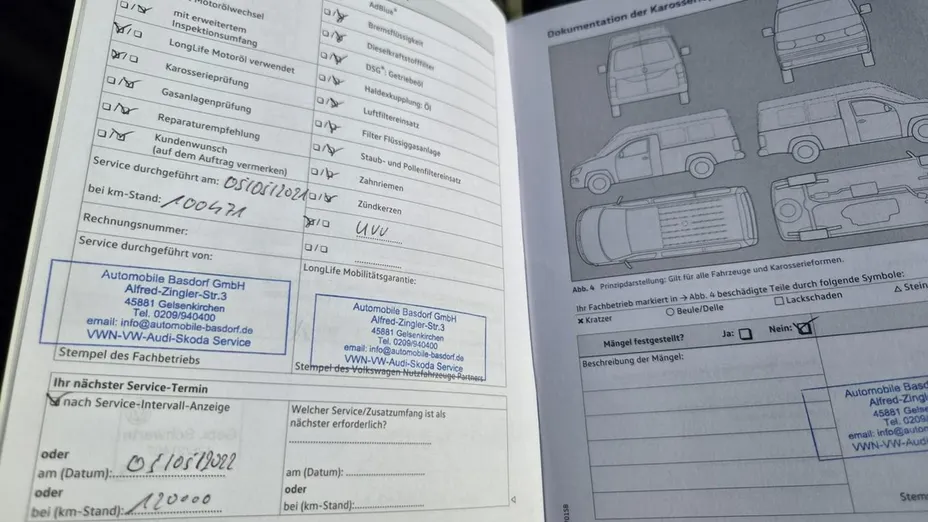 Motorölwechsel
mit erweitertem
Inspektionsumfang
LongLife Motoröl verwendet
Karosserieprüfung
Gasanlagenprüfung
Reparaturempfehlung
Kundenwunsch
(auf dem Auftrag vermerken)
Service durchgeführt am: 05/05/2021
bei km-Stand: 100471
Rechnungsnummer:
Service durchgeführt von:
Automobile Basdorf GmbH
Alfred-Zingler-Str.3
45881 Gelsenkirchen
Tel. 0209/940400
email: info@automobile-basdorf.de
VWN-VW-Audi-Skoda Service
Stempel des Fachbetriebs
AdBlue®
Bremsflüssigkeit
Dieselkraftstofffilter
DSG®: Getriebeöl
Haldexkupplung: Öl
Luftfiltereinsatz
Filter Flüssiggasanlage
Staub- und Pollenfiltereinsatz
Zahnriemen
Zündkerzen
UVV
LongLife Mobilitätsgarantie:
Automobile Basdorf GmbH
Alfred-Zingler-Str.3
45881 Gelsenkirchen
Tel. 0209/940400
email: info@automobile-basdorf.de
VWN-VW-Audi-Skoda Service
Stempel des Volkswagen Nutzfahrzeuge Partners
Ihr nächster Service-Termin
nach Service-Intervall-Anzeige
oder
am (Datum): 05/05/2022
oder
bei (km-Stand): 120000
Welcher Service/Zusatzumfang ist als
nächster erforderlich?
am (Datum):
oder
bei (km-Stand):
Dokumentation der
Abb. 4 Prinzipdarstellung: Gilt für alle Fahrzeuge und Karosserieformen.
Ihr Fachbetrieb markiert in → Abb. 4 beschädigte Teile durch folgende Symbole:
× Kratzer ○ Beule/Delle □ Lackschaden △ Stein
Mängel festgestellt? Ja: Nein:
Beschreibung der Mängel:
Automobile Basd
Alfred-Zingler
45881 Gelse
Tel. 0209/
email: info@auto
VWN-VW-Au
Stem